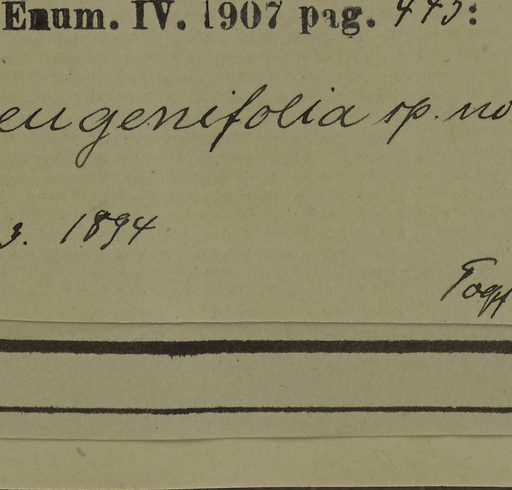 Enum. IV. 1907 pag. 443:
eugenifolia sp. no
3. 1894